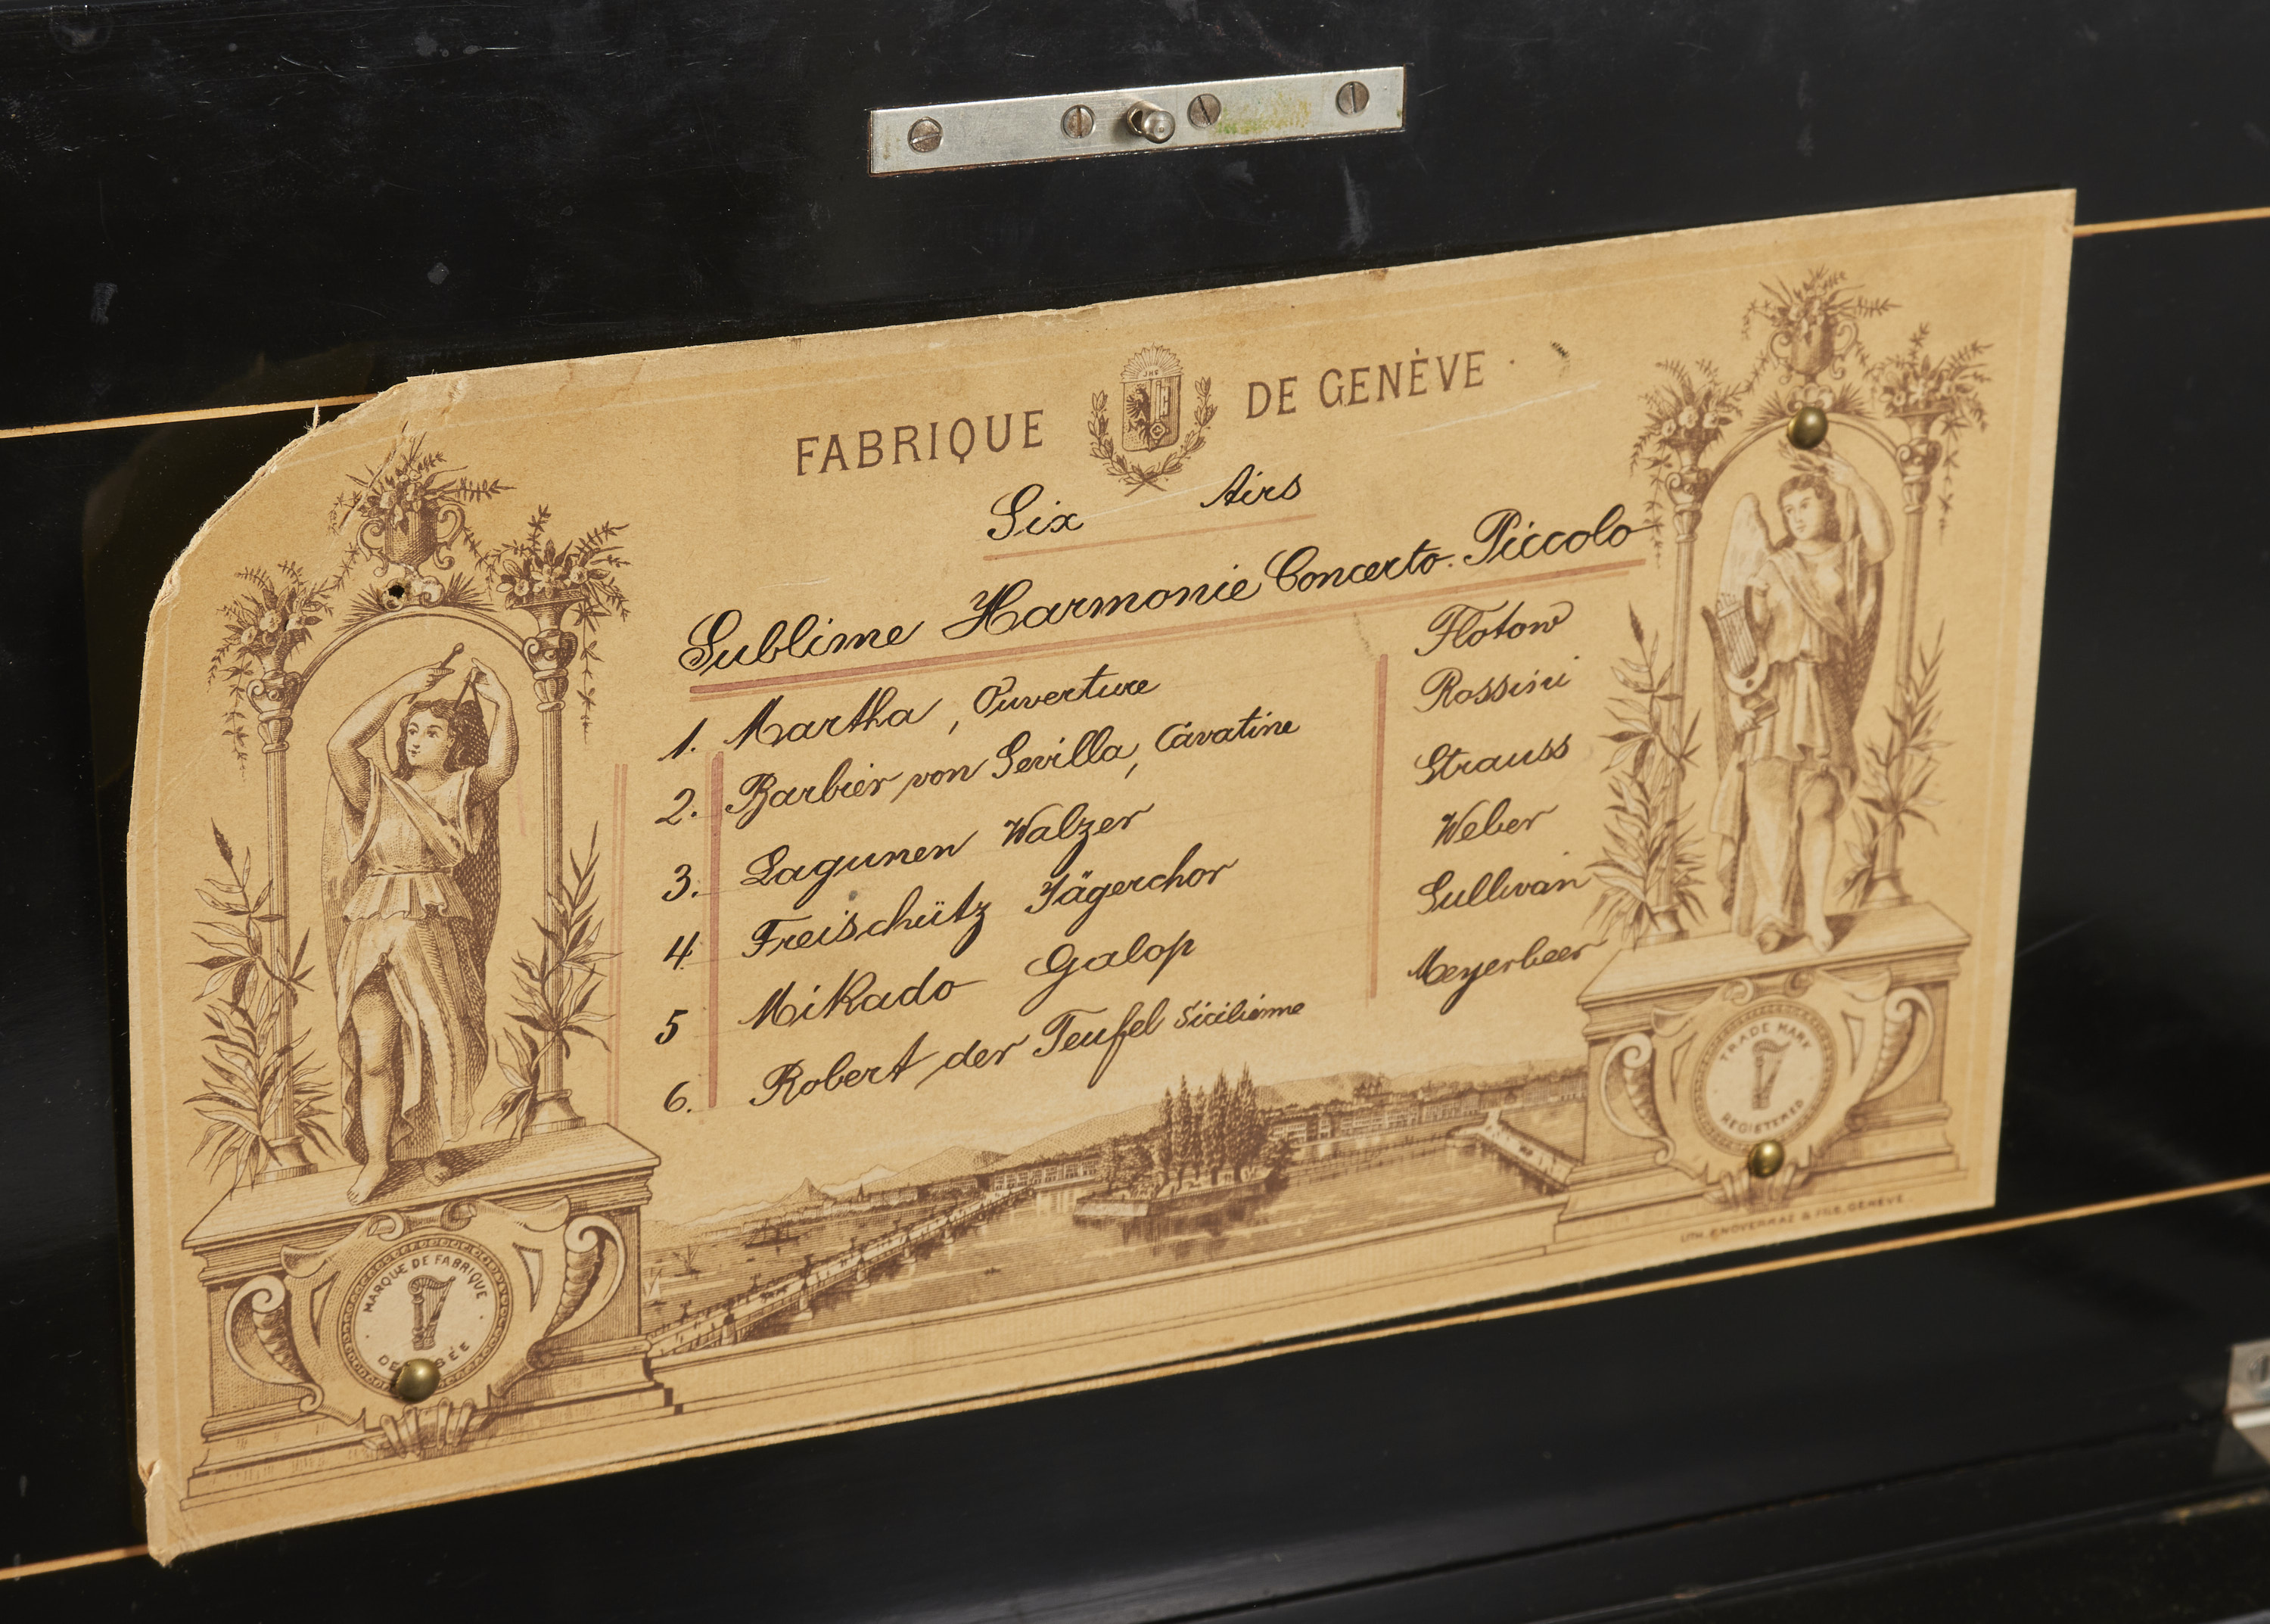 FABRIQUE DE GENÈVE
Six Airs
Sublime Harmonie Concerto. Piccolo
1. Martha, Ouverture Flotow
2. Barbier von Sevilla, Cavatine Rossini
3. Lagunen Walzer Strauss
4. Freischütz Jägerchor Weber
5 Mikado Galop Sullivan
6. Robert der Teufel Sicilienne Meyerbeer
MARQUE DE FABRIQUE
TRADE MARK
REGISTERED
LITH. & FILS, GENÈVE.